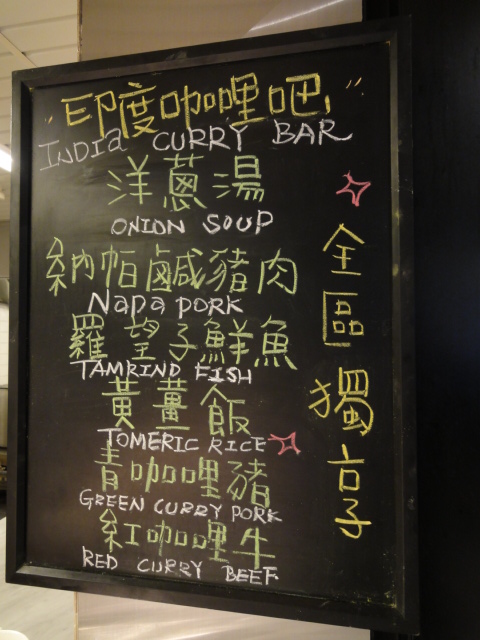 "印度咖哩吧"
INDIA CURRY BAR
洋蔥湯
ONION SOUP
納帕鹹豬肉
Napa PORK
羅望子鮮魚
TAMRIND FISH
黃薑飯
TOMERIC RICE
青咖哩豬
GREEN CURRY PORK
紅咖哩牛
RED CURRY BEEF
全區獨享